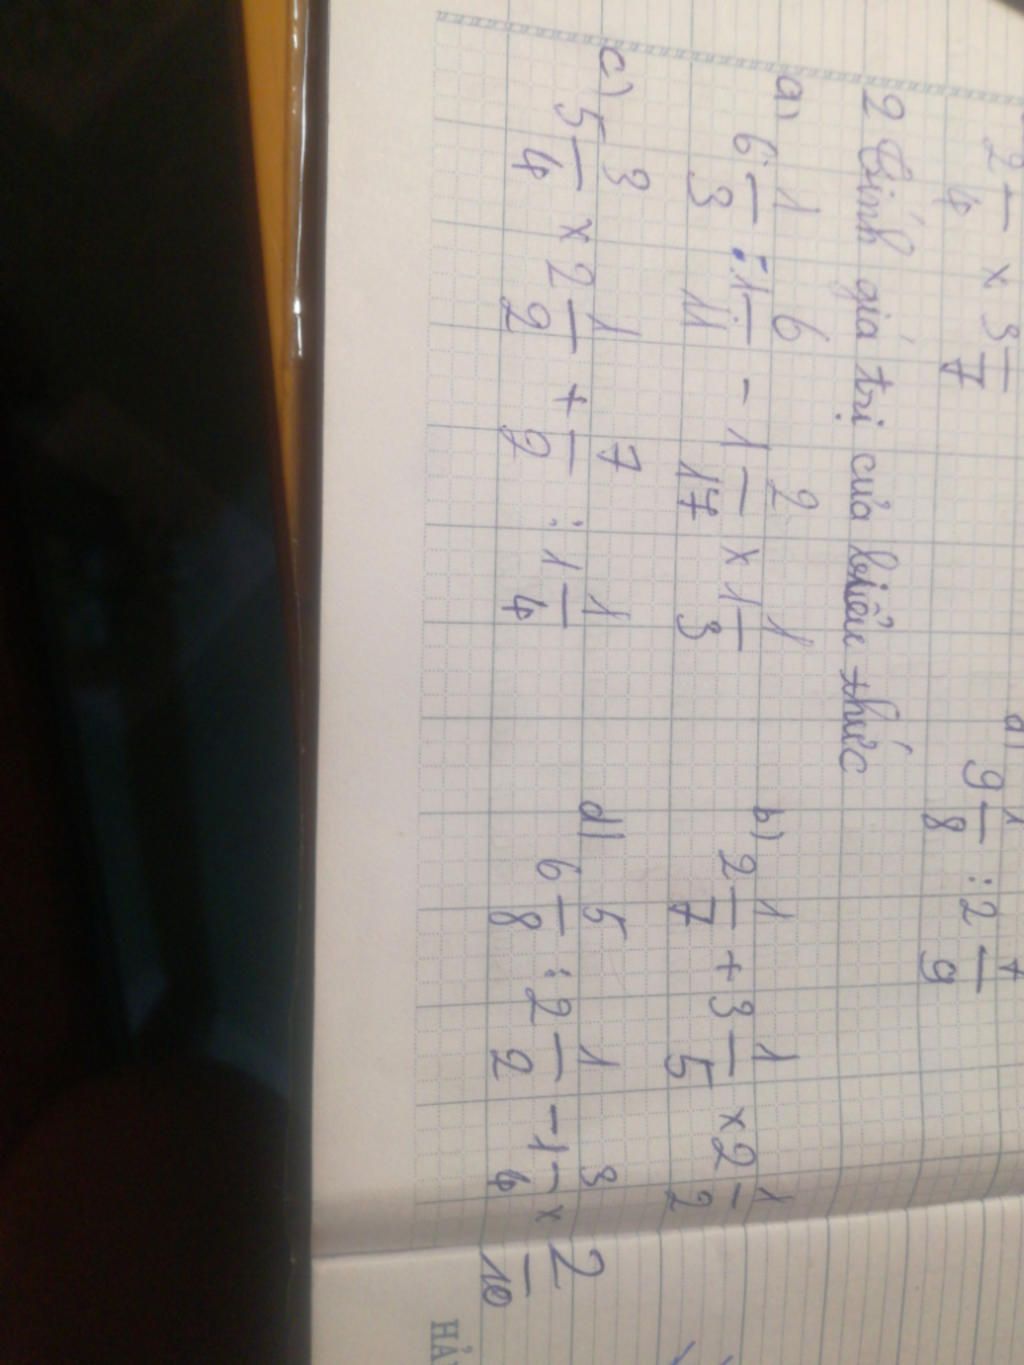 2 — × 3 —
4 7
d) 9 — : 2 —
8 9
2 Tính giá trị của biểu thức
a) 6 1/3 : 1 6/11 - 1 2/17 × 1 1/3
b) 2 1/7 + 3 1/5 × 2 1/2
c) 5 3/4 × 2 1/2 + 7/2 : 1 1/4
d) 6 5/8 : 2 1/2 - 1 3/4 × 2/10